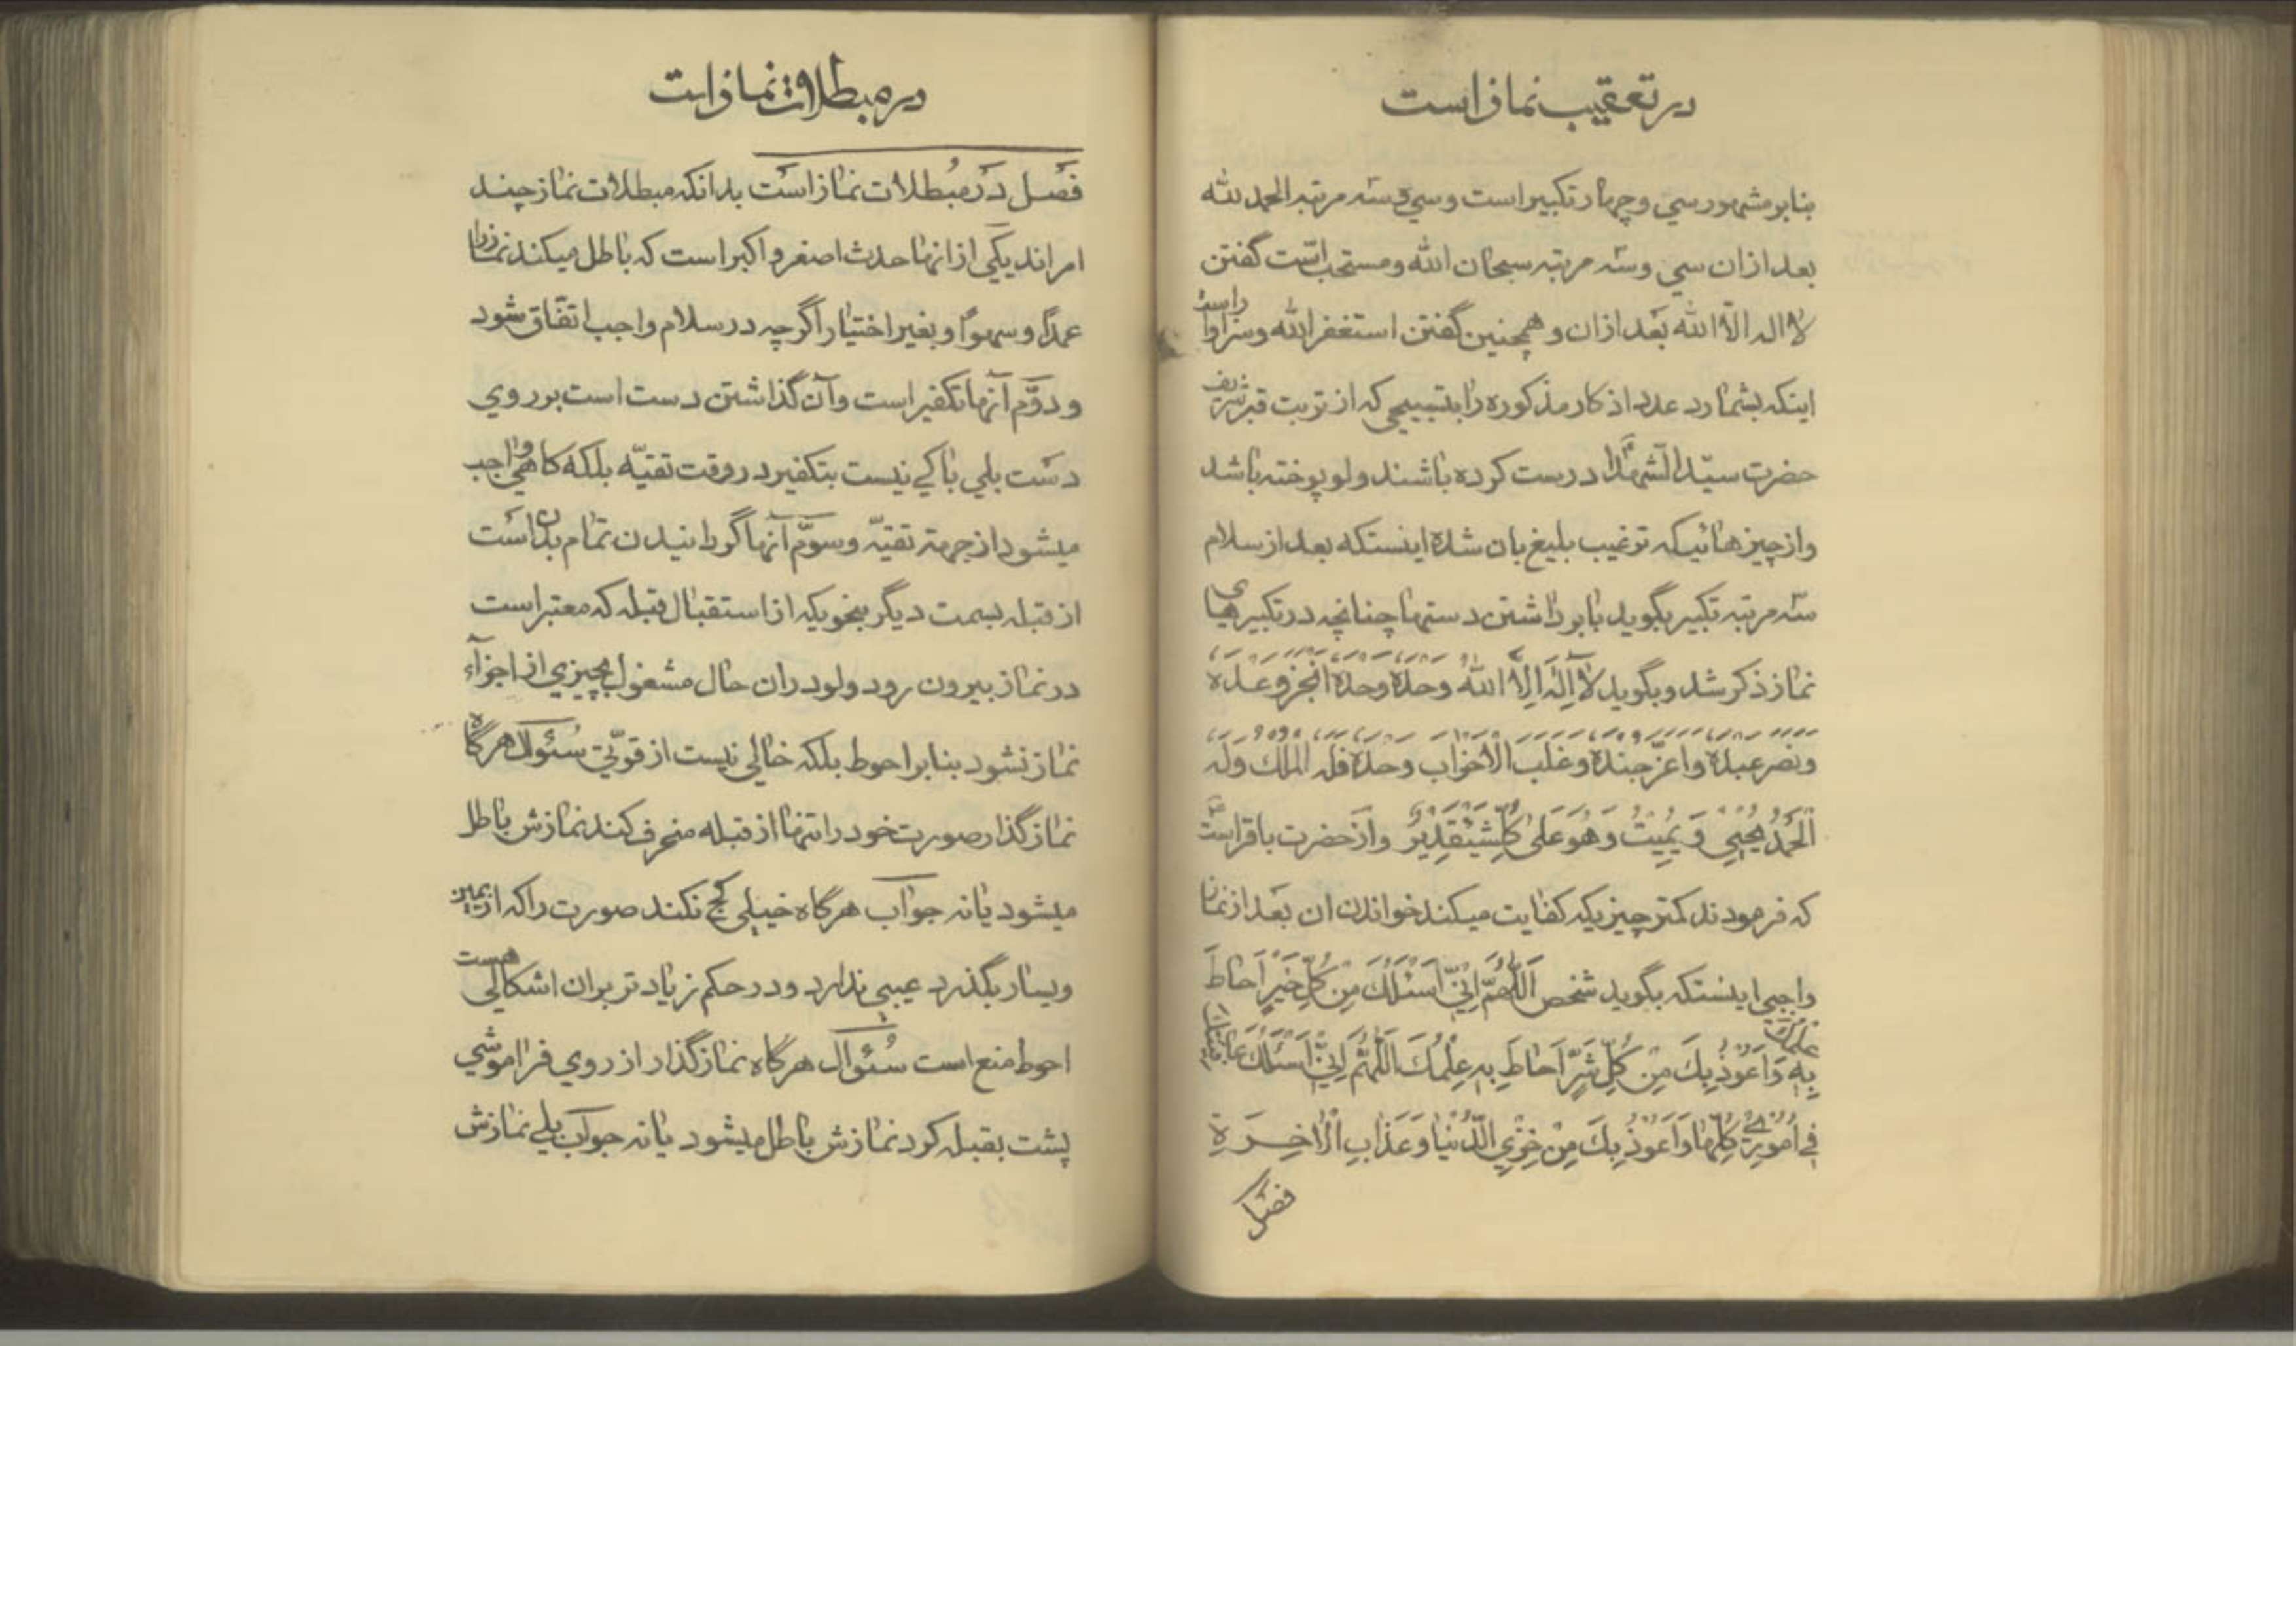 در تعقیب نماز است
بنابر مشهور سي و چهار تکبیر است وسي و سه مرتبه الحمد لله
بعد ازان سي وسه مرتبه سبحان الله ومستحب است گفتن
لا اله الا الله بعد ازان و همچنین گفتن استغفر الله وسزاوار است
اینکه بشمارد عدد اذکار مذکوره را بتسبیحی که از تربت قبر شریف
حضرت سیّد الشهدا درست کرده باشند ولو پوخته باشد
واز چیزهائیکه ترغیب بلیغ بان شده اینستکه بعد از سلام
سه مرتبه تکبیر بگوید با برداشتن دستها چنانچه در تکبیرهای
نماز ذکر شد وبگوید لا اِلٰهَ اِلَّا الله وحده وحده انجز وعده
ونصر عبده واعزّ جنده وغلب الاحزاب وحده فله الملك وله
الحَمْدُ یُحْیِي وَ یُمِیتُ وَ هُوَ عَلیٰ کُلِّشَيْئٍقَدِیرٌ واز حضرت باقر است
که فرمودند کمتر چیزیکه کفایت میکند خواندن ان بعد از نماز
واجبی اینستکه بگوید شخص اَللّٰهُمَّ اِنِّي اَسْئَلُكَ مِنْ کُلِّ خَیْرٍ اَحٰاطَ
بِهِ عِلْمُكَ وَ اَعُوذُ بِكَ مِنْ کُلِّ شَرٍّ اَحٰاطَ بِهِ عِلْمُكَ اَللّٰهُمَّ اِنِّي اَسْئَلُكَ عافِیَتَكَ
فِي اُمُورِي کُلِّهٰا وَ اَعُوذُ بِكَ مِنْ خِزْيِ الدُّنْیٰا وَ عَذٰابِ الْاٰخِـرَةِ
فصل
در مبطلات نماز است
فصل در مبطلات نماز است بدانکه مبطلات نماز چند
امر اند یکي از انها حدث اصغر و اکبر است که باطل میکند نماز را
عمدًا وسهوًا و بغیر اختیار اگرچه در سلام واجب اتفّاق شود
و دوّم آنها تکفیر است وآن گذاشتن دست است بر روي
دست بلي باکي نیست بتکفیر در وقت تقیّه بلکه گاهي واجب
میشود از جهت تقیّه وسوّم آنها گردانیدن تمام بدن است
از قبله بسمت دیگر بنحویکه از استقبال قبله که معتبر است
در نماز بیرون رود ولو دران حال مشغول بچیزي از اجزآء
نماز نشود بنابر احوط بلکه خالي نیست از قوّتي سُئوال هرگاه
نمازگذار صورت خود را تنها از قبله منحرف کند نمازش باطل
میشود یا نه جواب هرگاه خیلي کج نکند صورت را که از یمین
ویسار بگذرد عیبي ندارد ودر حکم زیادتر بران اشکالي هست
احوط منع است سُئوال هرگاه نمازگذار از روي فراموشي
پشت بقبله کرد نمازش باطل میشود یا نه جواب بلي نمازش